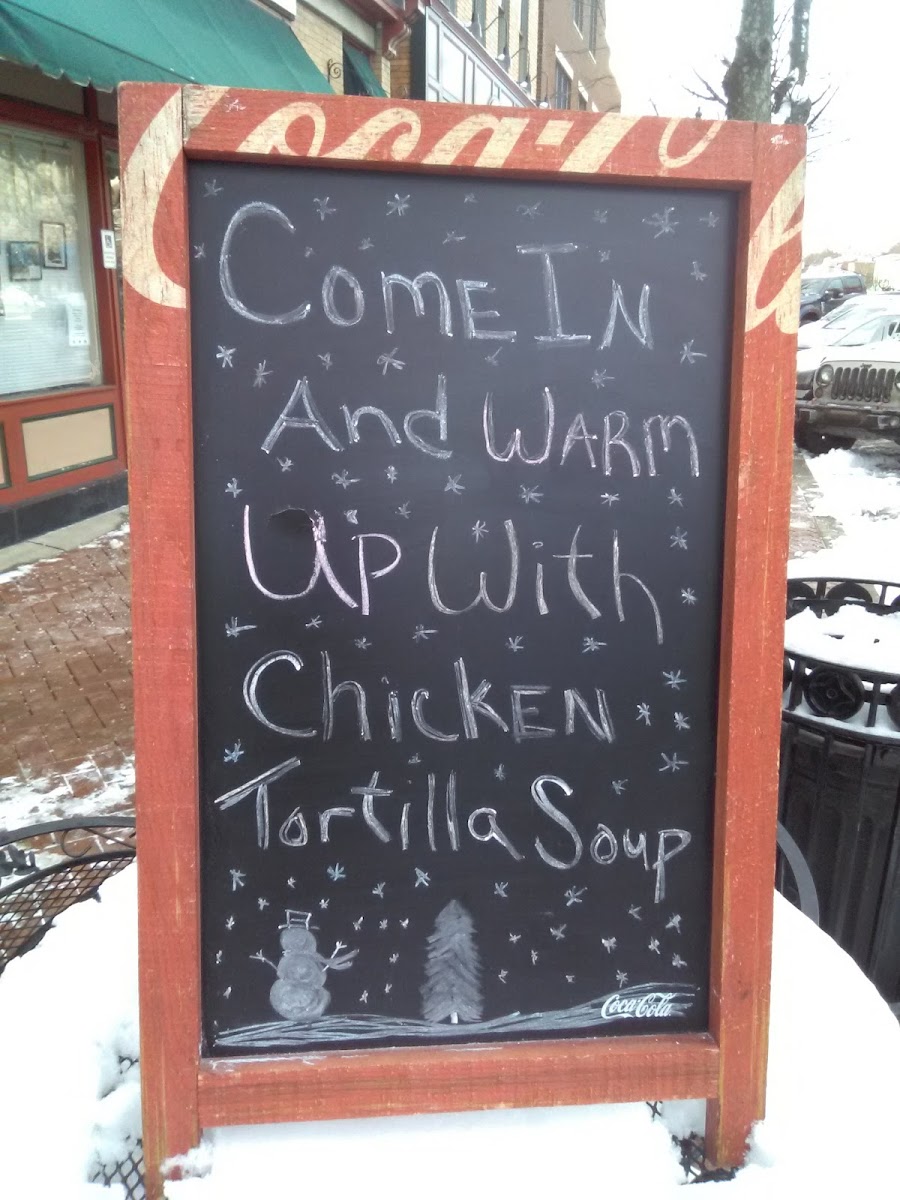 Coca-Cola
Come In
And Warm
Up With
Chicken
Tortilla Soup
Coca-Cola